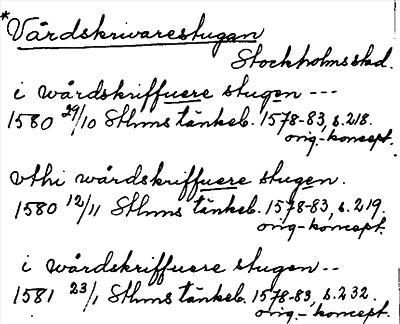 *Vårdskrivarestugan
Stockholms skd.
i wårdskriffuere stugen ---
1580 29/10 Sthms tänkeb. 1578-83, s. 218.
orig.-koncept.
vthi wårdskriffuere stugen.
1580 12/11 Sthms tänkeb. 1578-83, s. 219.
orig.-koncept.
i wårdskriffuere stugen --
1581 23/1 Sthms tänkeb. 1578-83, s. 232.
orig.-koncept.